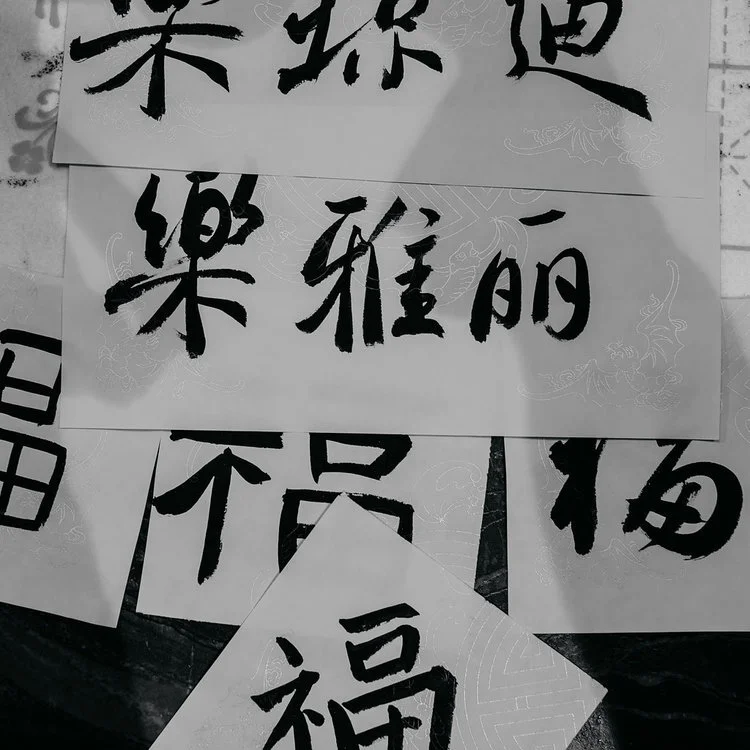 樂琼迪
樂雅丽
福 福 福
福